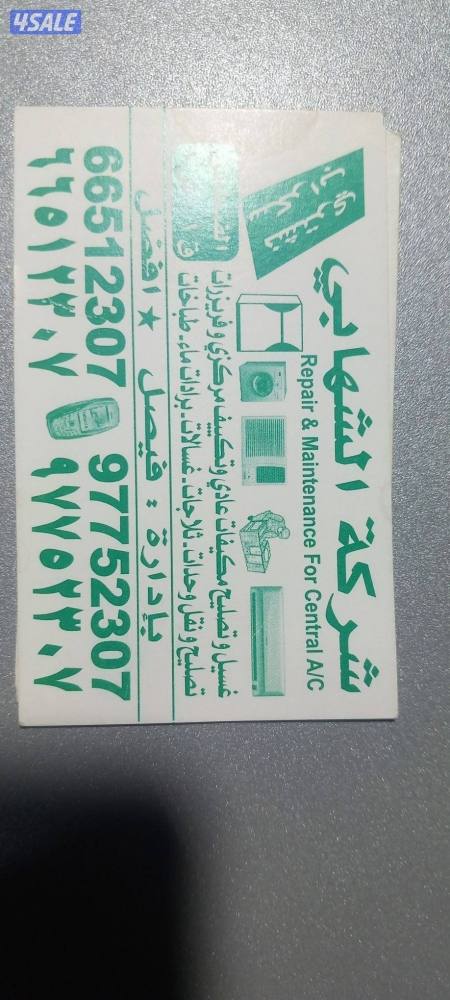 4SALE
شركة الشهابي
Repair & Maintenance For Central A/C
نشتري
سكراب
غسيل وتصليح مكيفات عادي وتكييف مركزي و فريزرات
تصليح و نقل وحدات - ثلاجات - غسالات - برادات ماء - طباخات
بإدارة : فيصل ★ افضل
66512307 97752307
٦٦٥١٢٣٠٧ ٩٧٧٥٢٣٠٧